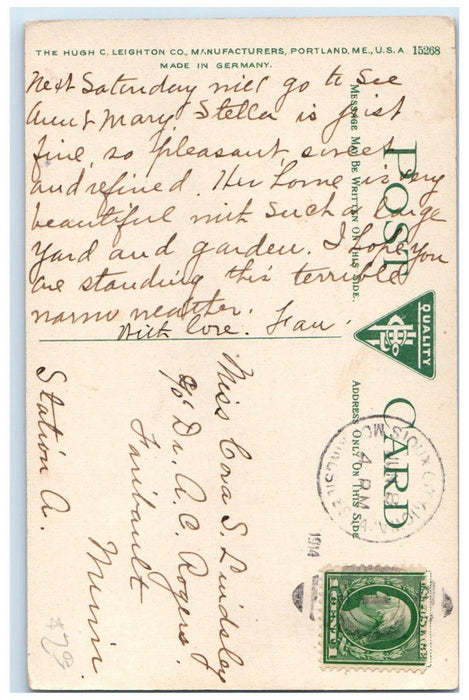 THE HUGH C. LEIGHTON CO., MANUFACTURERS, PORTLAND, ME., U.S.A. 15268
MADE IN GERMANY.
Next Saturday will go to see
Aunt Mary. Stella is just
fine, so pleasant sweet
and refined. Her home is very
beautiful with such a large
yard and garden. I hope you
are standing this terrible
warm weather.
With love. Fan.
POST CARD
MESSAGE MAY BE WRITTEN ON THIS SIDE.
ADDRESS ONLY ON THIS SIDE
QUALITY
Miss Cora S. Lindsley
c/o Dr. A. C. Rogers
Faribault
Minn.
Station A.
SIOUX CITY
4 PM
1914
1 CENT 1